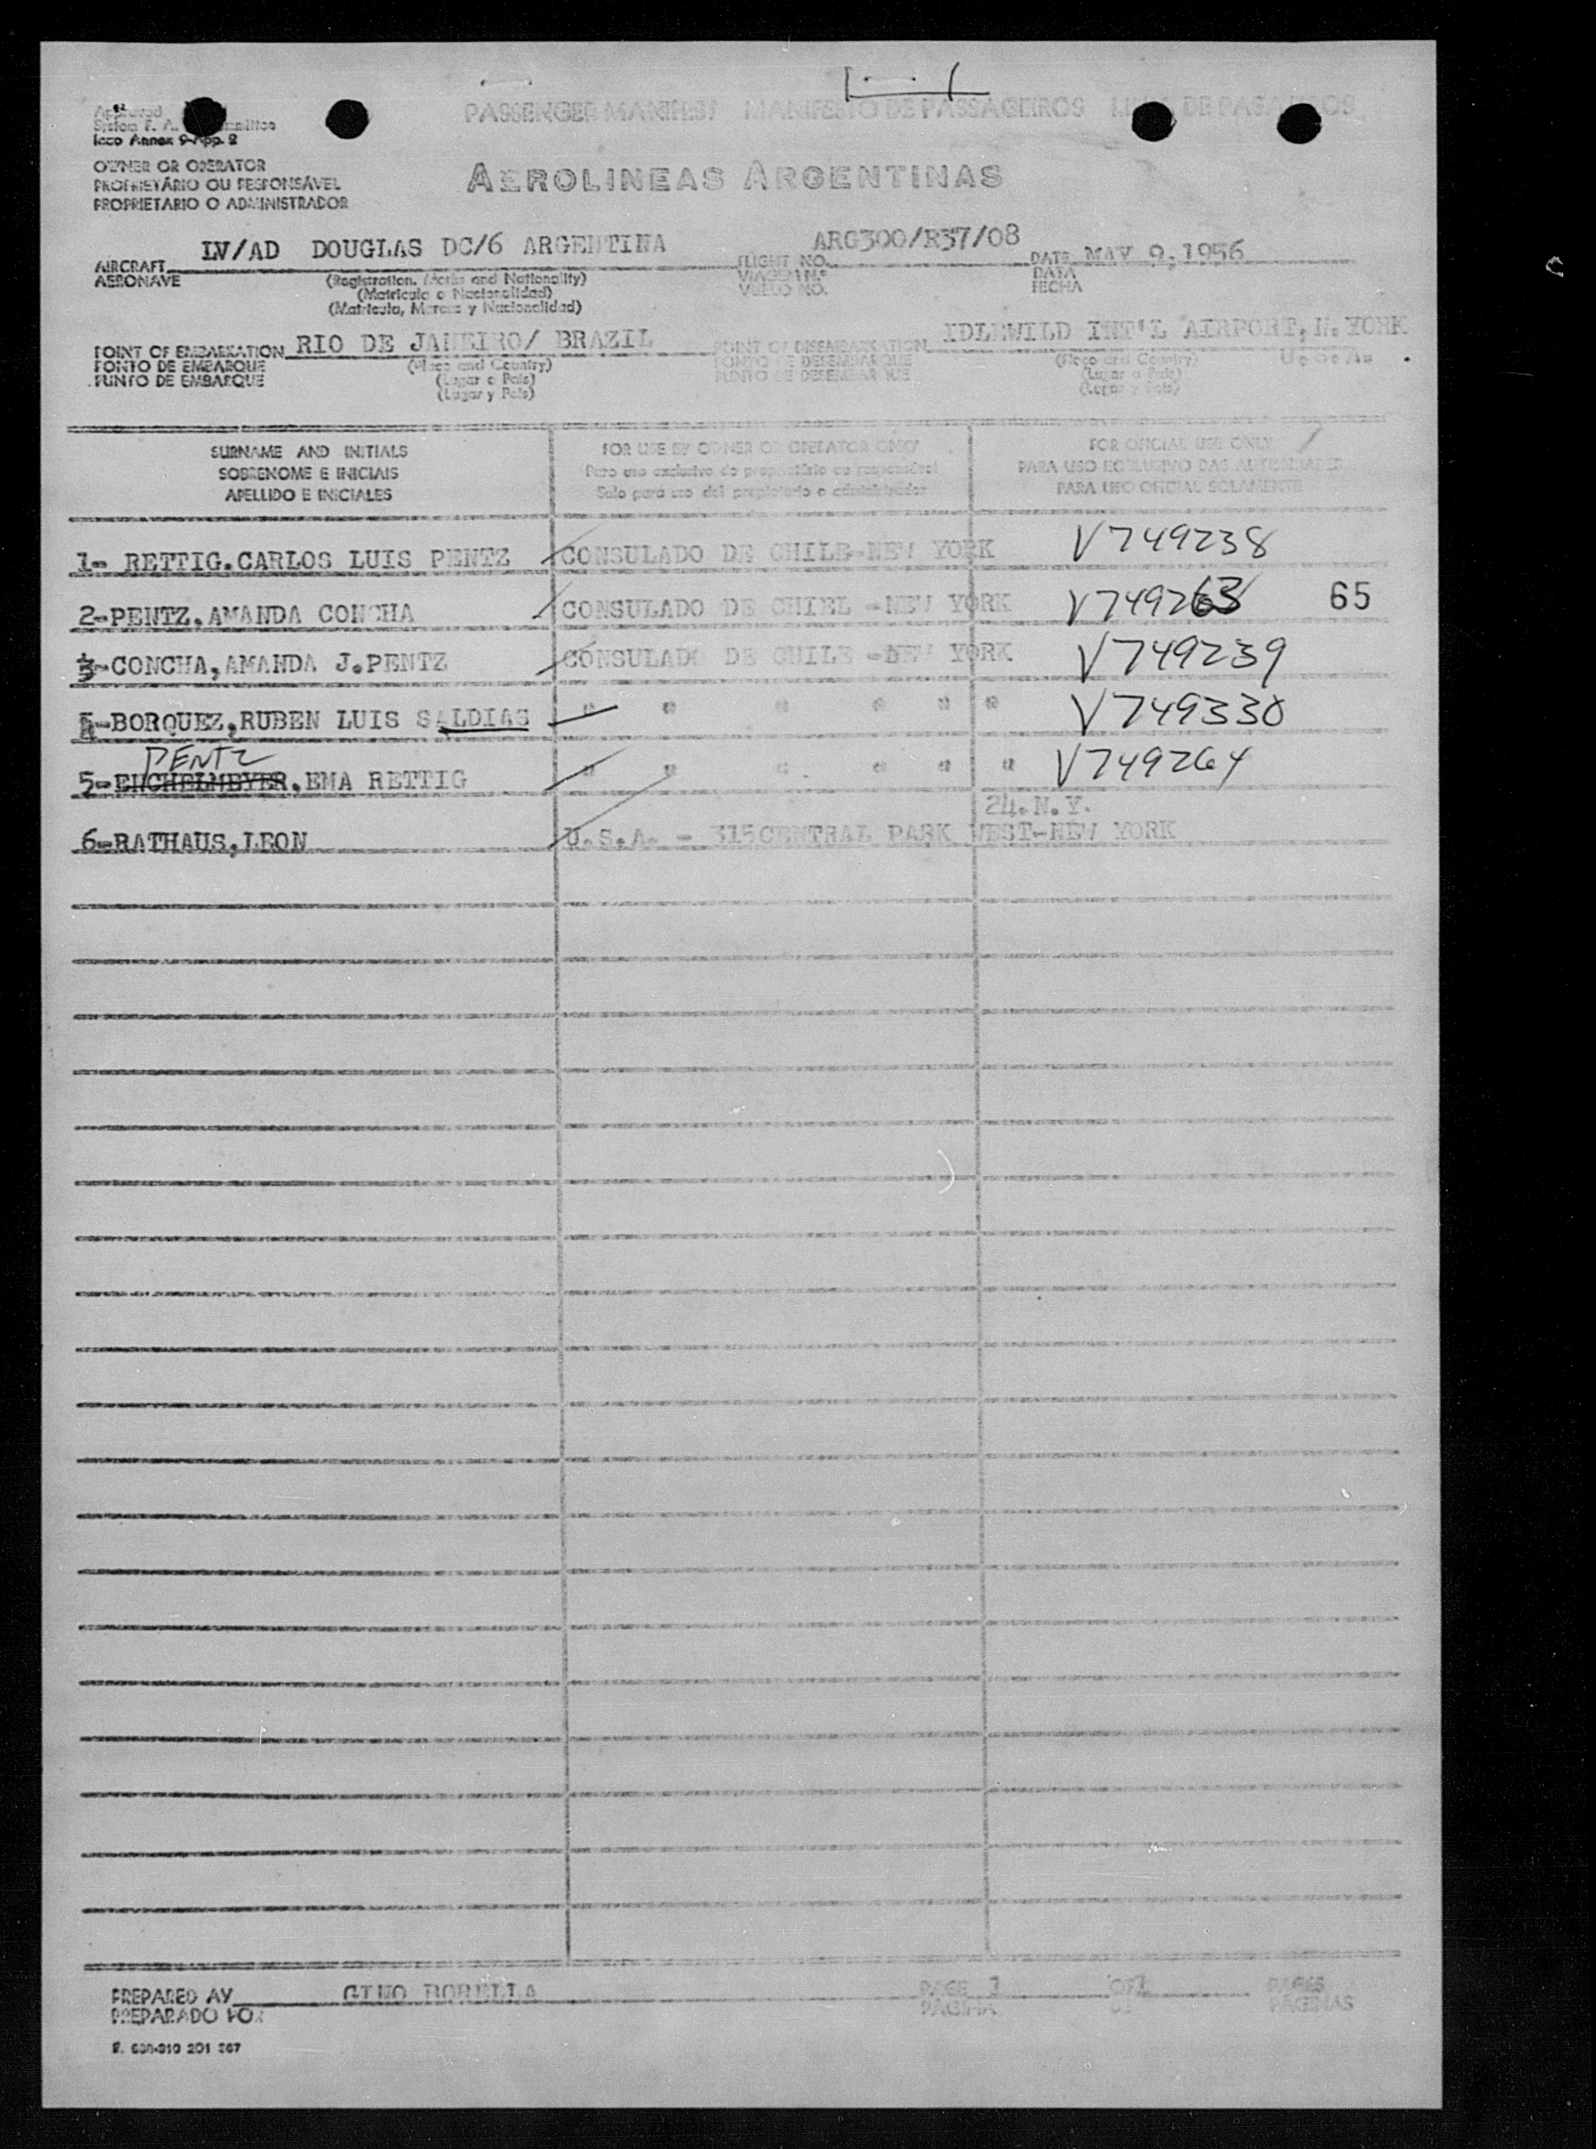 PASSENGER MANIFEST MANIFESTO DE PASSAGEIROS DE PASAJEROS
Approved
System F. A.
Icao Annex 9-App. 2
OWNER OR OPERATOR
PROPRIETÁRIO OU RESPONSÁVEL
PROPRIETARIO O ADMINISTRADOR
AEROLINEAS ARGENTINAS
AIRCRAFT LV/AD DOUGLAS DC/6 ARGENTINA FLIGHT NO. ARG300/R37/08 DATE MAY 9,1956
AERONAVE (Registration, Marks and Nationality) VIAGEM N.º DATA
(Matricula e Nacionalidad) VUELO NO. FECHA
(Matricula, Marcas y Nacionalidad)
POINT OF EMBARKATION RIO DE JANEIRO/ BRAZIL POINT OF DISEMBARKATION IDLEWILD INT'L AIRPORT, N. YORK
PONTO DE EMBARQUE (Place and Country) PONTO DE DESEMBARQUE (Place and Country) U. S. A.
PUNTO DE EMBARQUE (Lugar e Pais) PUNTO DE DESEMBARQUE (Lugar e Pais)
(Lugar y Pais) (Lugar y Pais)
SURNAME AND INITIALS FOR USE BY OWNER OR OPERATOR ONLY FOR OFICIAL USE ONLY
SOBRENOME E INICIAIS Para uso exclusivo do proprietário ou responsável PARA USO EXCLUSIVO DAS AUTORIDADES
APELLIDO E INICIALES Solo para uso del propietario o administrador PARA USO OFICIAL SOLAMENTE
1- RETTIG.CARLOS LUIS PENTZ CONSULADO DE CHILE-NEW YORK V749238
2-PENTZ,AMANDA CONCHA CONSULADO DE CHIEL -NEW YORK V749263 65
3-CONCHA,AMANDA J.PENTZ CONSULADO DE CHILE -NEW YORK V749239
-BORQUEZ,RUBEN LUIS SALDIAS " " " " " " V749330
PENTZ
5-EHCHELMEYER,EMA RETTIG " " " " " " V749264
24.N.Y.
6-RATHAUS,LEON U.S.A. - 315CENTRAL PARK WEST-NEW YORK
PREPARED AY GINO BORELLA PAGE 1 OF1 PAGES
PREPARADO POR PAGINA DE PAGINAS